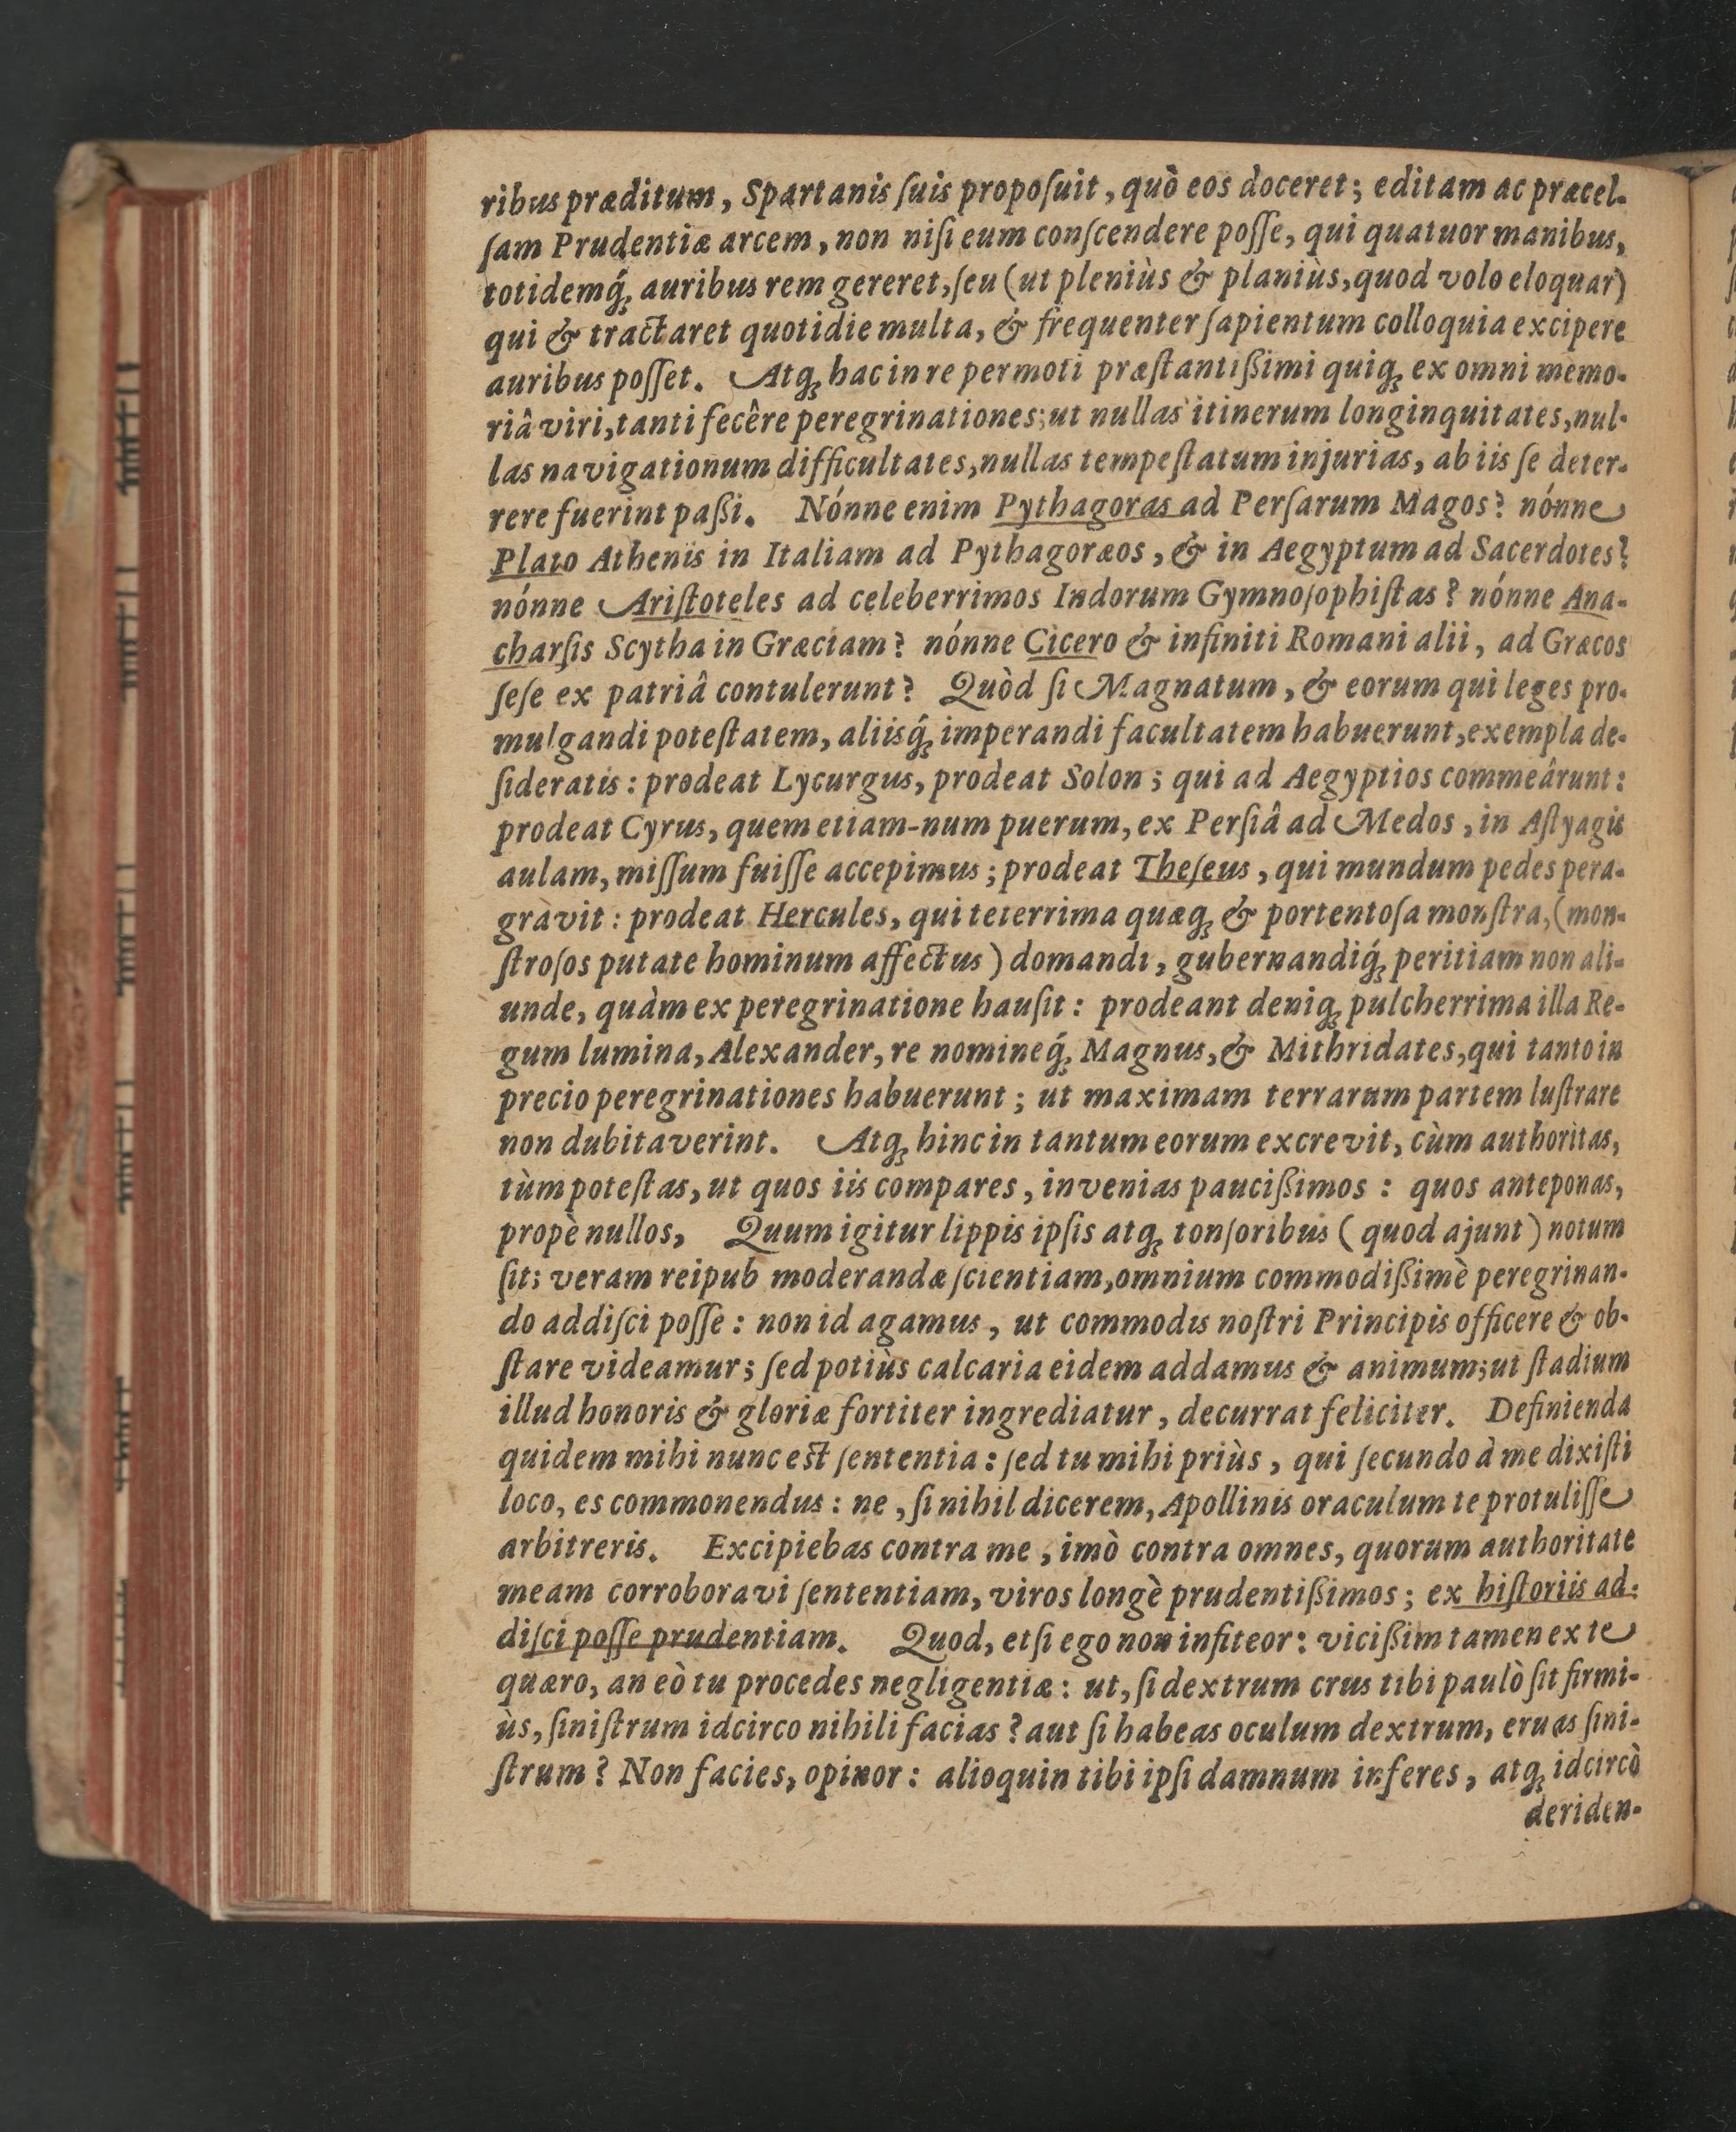 ribus præditum, Spartanis ſuis propoſuit, quò eos doceret; editam ac præcel-
ſam Prudentiæ arcem, non niſi eum conſcendere poſſe, qui quatuor manibus,
totidemq́ꝫ auribus rem gereret, ſeu (ut pleniùs & planiùs, quod volo eloquar)
qui & tractaret quotidie multa, & frequenter ſapientum colloquia excipere
auribus poſſet. Atqꝫ hac in re permoti præſtantißimi quiqꝫ ex omni memo-
riâ viri, tanti fecêre peregrinationes; ut nullas itinerum longinquitates, nul-
las navigationum difficultates, nullas tempeſtatum injurias, ab iis ſe deter-
rere fuerint paßi. Nónne enim Pythagoras ad Perſarum Magos? nónne
Plato Athenis in Italiam ad Pythagoræos, & in Aegyptum ad Sacerdotes?
nónne Ariſtoteles ad celeberrimos Indorum Gymnoſophiſtas? nónne Ana-
charſis Scytha in Græciam? nónne Cicero & infiniti Romani alii, ad Græcos
ſeſe ex patriâ contulerunt? Quòd ſi Magnatum, & eorum qui leges pro-
mulgandi poteſtatem, aliisq́ꝫ imperandi facultatem habuerunt, exempla de-
ſideratis: prodeat Lycurgus, prodeat Solon; qui ad Aegyptios commeârunt:
prodeat Cyrus, quem etiam-num puerum, ex Perſiâ ad Medos, in Aſtyagis
aulam, miſſum fuiſſe accepimus; prodeat Theſeus, qui mundum pedes pera-
gravit: prodeat Hercules, qui teterrima quæqꝫ & portentoſa monſtra, (mon-
ſtroſos putate hominum affectus) domandi, gubernandiq́ꝫ peritiam non ali-
unde, quàm ex peregrinatione hauſit: prodeant deniqꝫ pulcherrima illa Re-
gum lumina, Alexander, re nomineq́ꝫ Magnus, & Mithridates, qui tanto in
precio peregrinationes habuerunt; ut maximam terrarum partem luſtrare
non dubitaverint. Atqꝫ hinc in tantum eorum excrevit, cùm authoritas,
tùm poteſtas, ut quos iis compares, invenias paucißimos: quos anteponas,
propè nullos, Quum igitur lippis ipſis atqꝫ tonſoribus (quod ajunt) notum
ſit; veram reipub moderandæ ſcientiam, omnium commodißimè peregrinan-
do addiſci poſſe: non id agamus, ut commodis noſtri Principis officere & ob-
ſtare videamur; ſed potiùs calcaria eidem addamus & animum; ut ſtadium
illud honoris & gloriæ fortiter ingrediatur, decurrat feliciter. Definienda
quidem mihi nunc eſt ſententia: ſed tu mihi priùs, qui ſecundo à me dixiſti
loco, es commonendus: ne, ſi nihil dicerem, Apollinis oraculum te protuliſſe
arbitreris. Excipiebas contra me, imò contra omnes, quorum authoritate
meam corroboravi ſententiam, viros longè prudentißimos; ex hiſtoriis ad-
diſci poſſe prudentiam. Quod, etſi ego non infiteor: vicißim tamen ex te
quæro, an eò tu procedes negligentiæ: ut, ſi dextrum crus tibi paulò ſit firmi-
ùs, ſiniſtrum idcirco nihili facias? aut ſi habeas oculum dextrum, eruas ſini-
ſtrum? Non facies, opinor: alioquin tibi ipſi damnum inferes, atqꝫ idcircò
deriden-